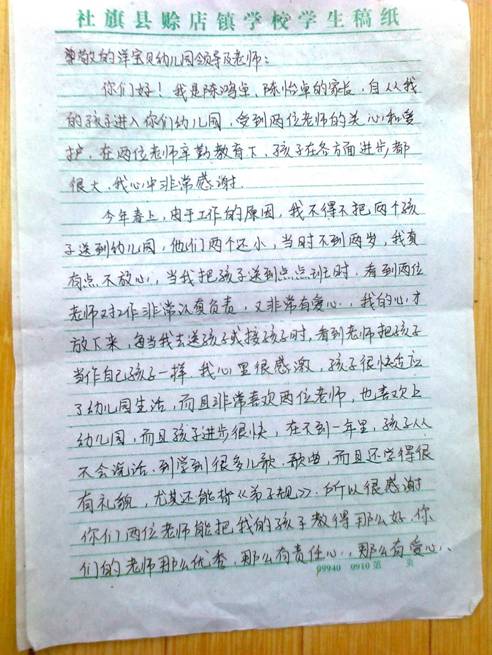 社旗县赊店镇学校学生稿纸
尊敬的洋宝贝幼儿园领导及老师：
你们好！我是陈鸿卓、陈怡卓的家长，自从我
的孩子进入你们幼儿园，受到两位老师的关心和爱
护，在两位老师辛勤教育下，孩子在各方面进步都
很大，我心中非常感谢．
今年春上，由于工作的原因，我不得不把两个孩
子送到幼儿园，他们两个还小，当时不到两岁，我真
有点不放心，当我把孩子送到点点班时，看到两位
老师对工作非常认真负责，又非常有爱心．，我的心才
放下来，每当我去送孩子或接孩子时，看到老师把孩子
当作自己孩子一样 我心里很感激，孩子很快适应
了幼儿园生活，而且非常喜欢两位老师，也喜欢上
幼儿园，而且孩子进步很快，在不到一年里，孩子从
不会说话，到学到很多儿歌、歌曲，而且还学得很
有礼貌，尤其还能背《弟子规》．所以很感谢
你们两位老师能把我的孩子教得那么好，你
们的老师那么优秀，那么有责任心．，那么有爱心．、
99940 9910 第 页